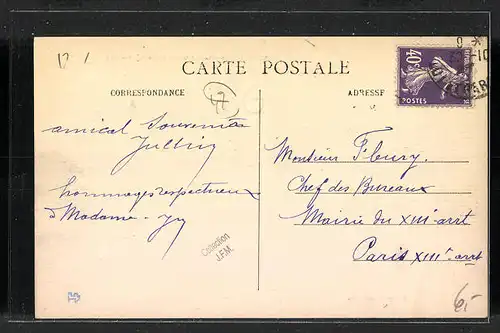 17
CARTE POSTALE
CORRESPONDANCE
ADRESSE
47
40c
POSTES
amical souvenir
hommages respectueux
à Madame
Monsieur Fleury.
Chef des Bureaux
Mairie du XIIIe arrt
Paris XIIIe arrt
Collection
J.F.M.
6,-